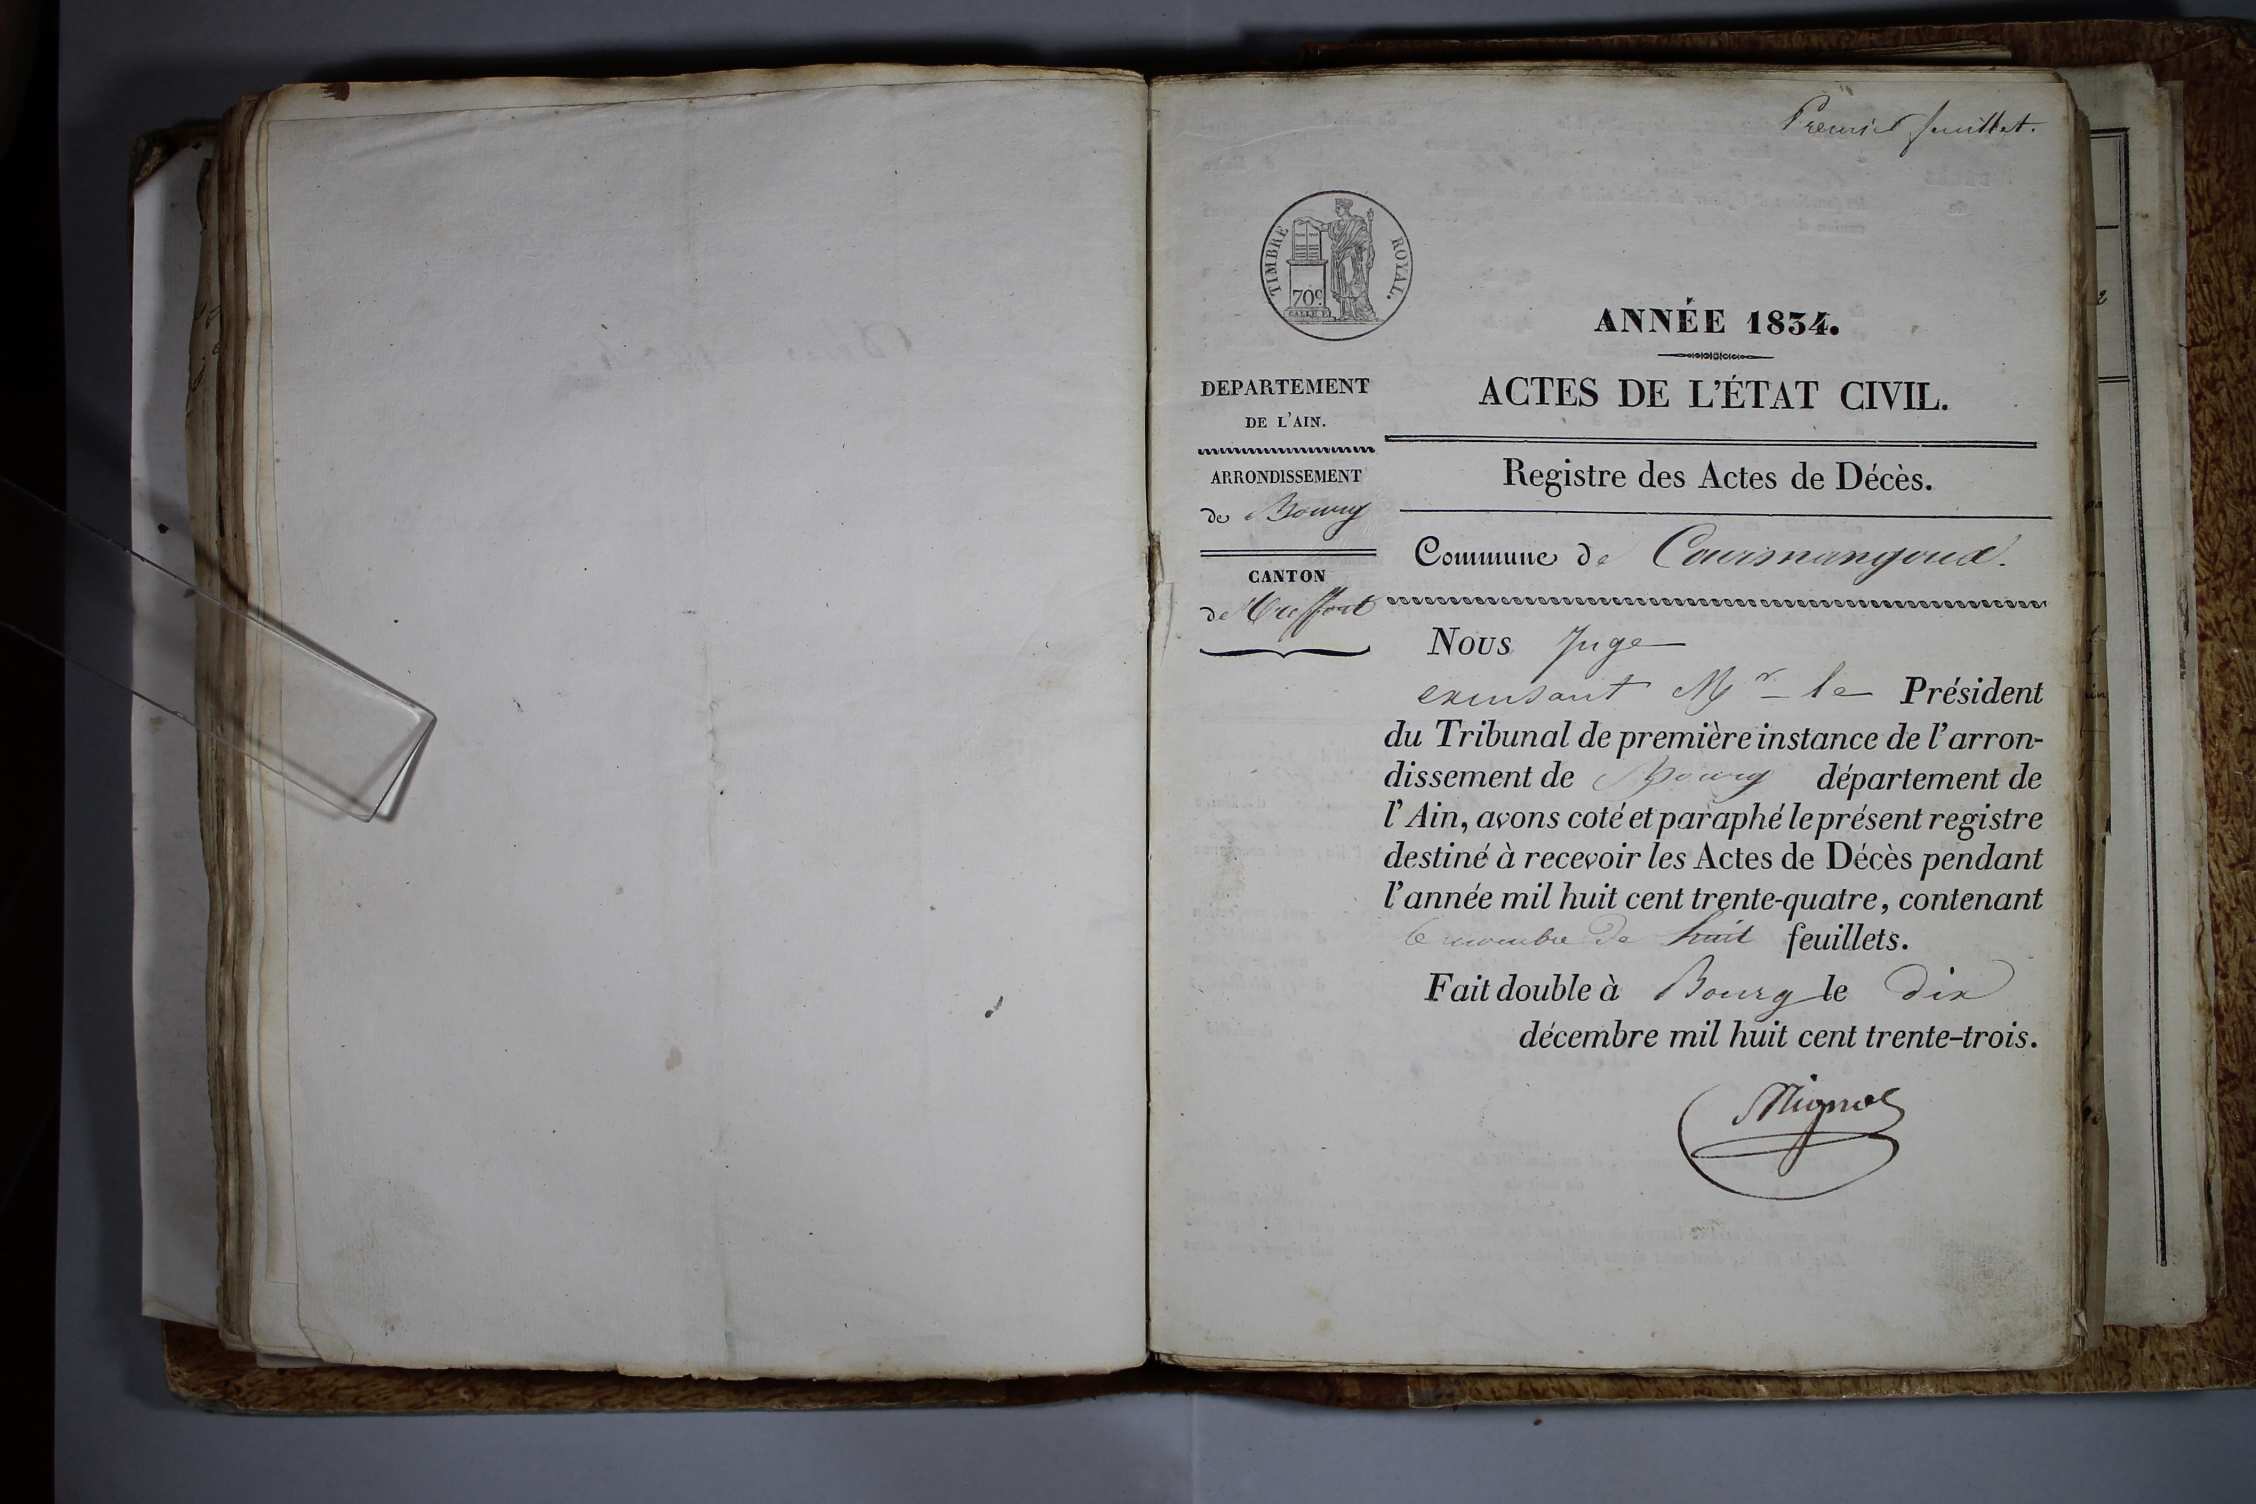 Premier feuillet.
TIMBRE ROYAL.
70 C.
ANNÉE 1834.
DEPARTEMENT
DE L'AIN.
ACTES DE L'ÉTAT CIVIL.
ARRONDISSEMENT
de Bourg
Registre des Actes de Décès.
CANTON
de Treffort
Commune de Courmangoux.
Nous Juge
exerçant Mr le Président
du Tribunal de première instance de l'arron-
dissement de Bourg département de
l'Ain, avons coté et paraphé le présent registre
destiné à recevoir les Actes de Décès pendant
l'année mil huit cent trente-quatre, contenant
le nombre de huit feuillets.
Fait double à Bourg le dix
décembre mil huit cent trente-trois.